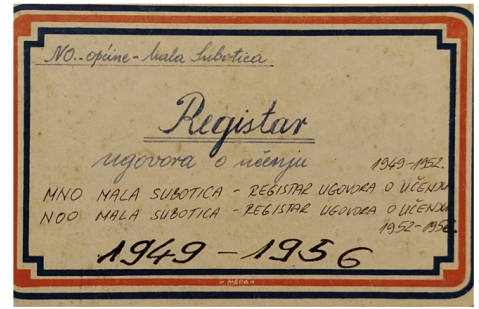 NO.-općine - Mala Subotica
Registar
ugovora o učenju
1949-1952.
MNO MALA SUBOTICA - REGISTAR UGOVORA O UČENJU
NOO MALA SUBOTICA - REGISTAR UGOVORA O UČENJU
1952-1956.
1949-1956